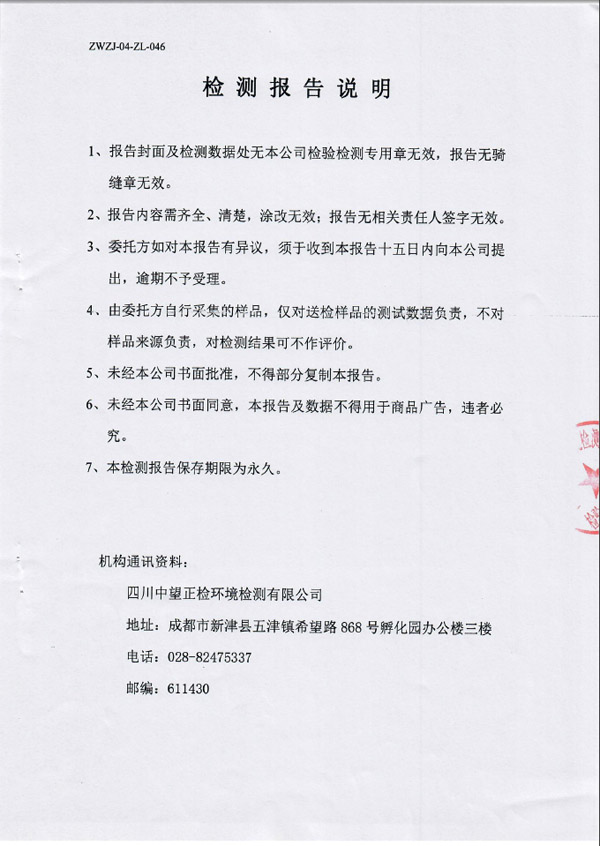 ZWZJ-04-ZL-046
检测报告说明
1、报告封面及检测数据处无本公司检验检测专用章无效，报告无骑
缝章无效。
2、报告内容需齐全、清楚，涂改无效；报告无相关责任人签字无效。
3、委托方如对本报告有异议，须于收到本报告十五日内向本公司提
出，逾期不予受理。
4、由委托方自行采集的样品，仅对送检样品的测试数据负责，不对
样品来源负责，对检测结果可不作评价。
5、未经本公司书面批准，不得部分复制本报告。
6、未经本公司书面同意，本报告及数据不得用于商品广告，违者必
究。
7、本检测报告保存期限为永久。
机构通讯资料：
四川中望正检环境检测有限公司
地址：成都市新津县五津镇希望路 868 号孵化园办公楼三楼
电话：028-82475337
邮编：611430